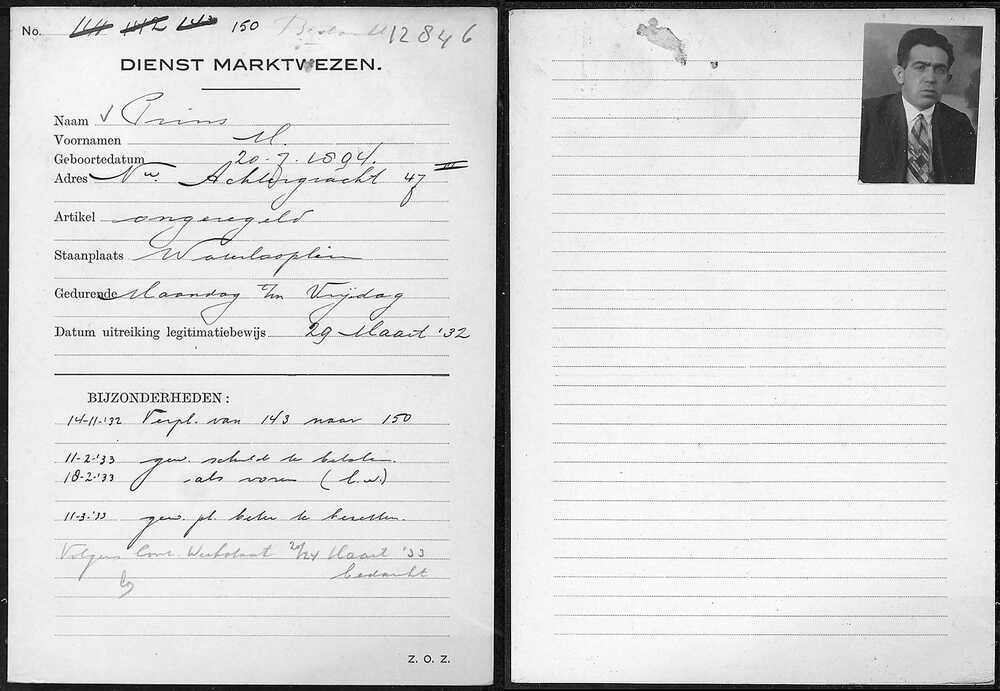 No. 114 142 143 150 12846
DIENST MARKTWEZEN.
Naam v Prins
Voornamen M.
Geboortedatum 20-7-1894.
Adres Nw. Achtergracht 47 III
Artikel ongeregeld
Staanplaats Waterlooplein
Gedurende Maandag t/m Vrijdag
Datum uitreiking legitimatiebewijs 29 Maart '32
BIJZONDERHEDEN:
14-11-'32 Verpl. van 143 naar 150
11-2-'33 gew. schuld te betalen.
18-2-'33 als voren (b.w.)
11-3-'33 gew. pl. beter te bezetten.
Volgens Contr. Weekstaat 20/24 Maart '33
bedankt
Z. O. Z.